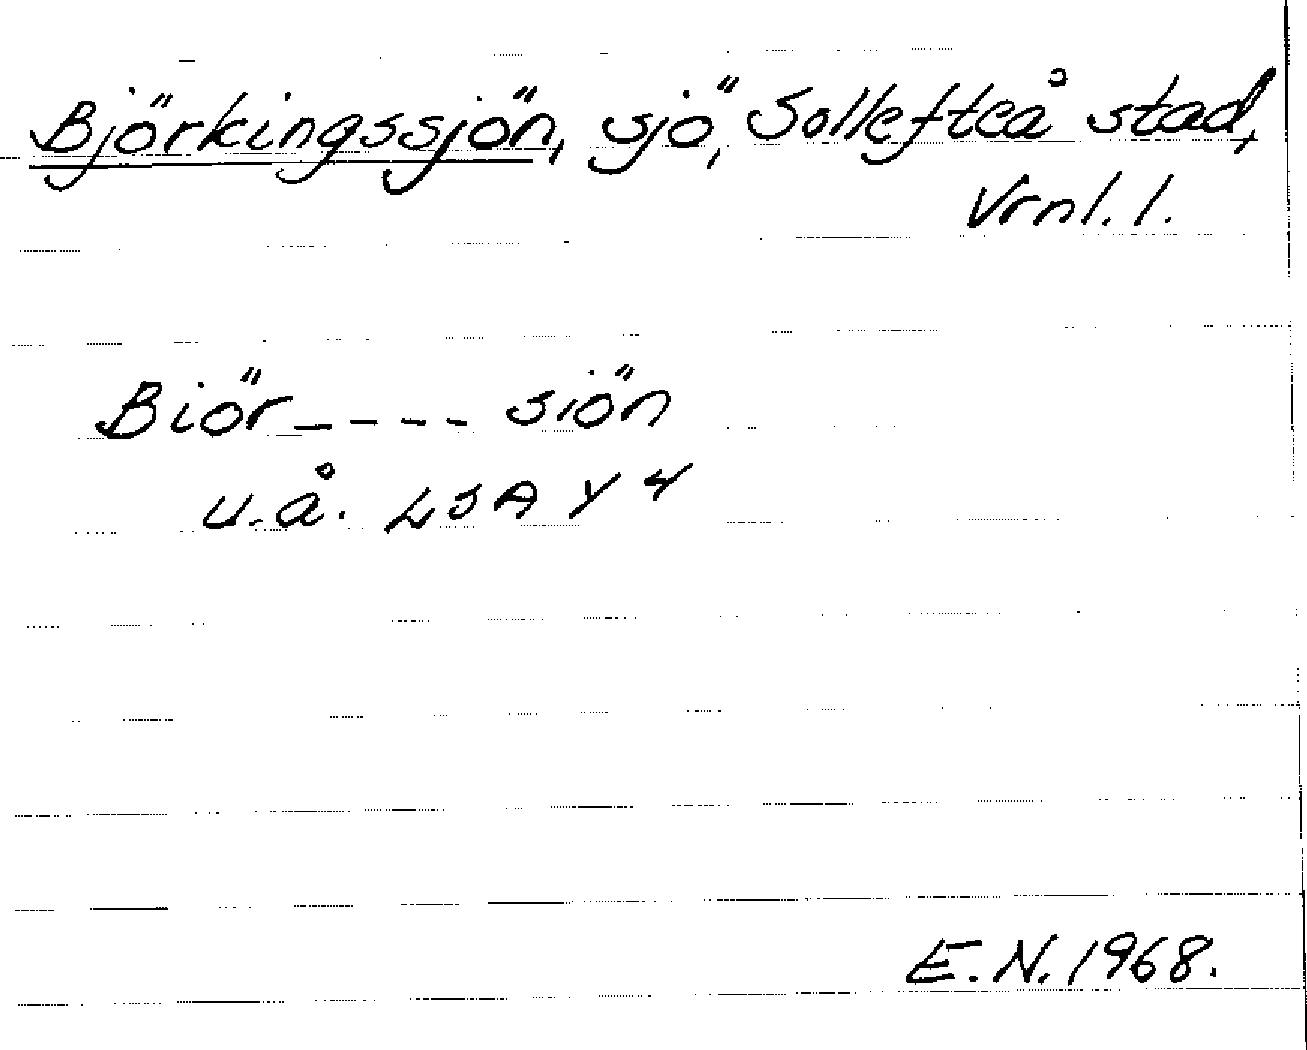 Björkingssjön, sjö, Sollefteå stad,
Vrnl. l.
Biör---- siön
u.å. LSA Y 4
E.N. 1968.